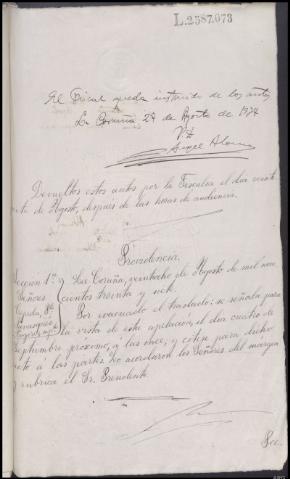 L.2587.073
El Fiscal queda instruido de los autos
La Coruña 27 de Agosto de 1934
Angel
Devueltos estos autos por la Fiscalia el dia veinte
de Agosto, despues de las horas de audiencia.
Providencia.
Seccion 1ª La Coruña, veintiocho de Agosto de mil nove
Señores cientos treinta y
Por evacuado el traslado; se señala para
la vista de esta apelacion, el dia cuatro de
septiembre próximo, á las once, y citese para dicho
á las partes. Lo acordaron los Señores del margen
y rubrica el Sr. Presidente